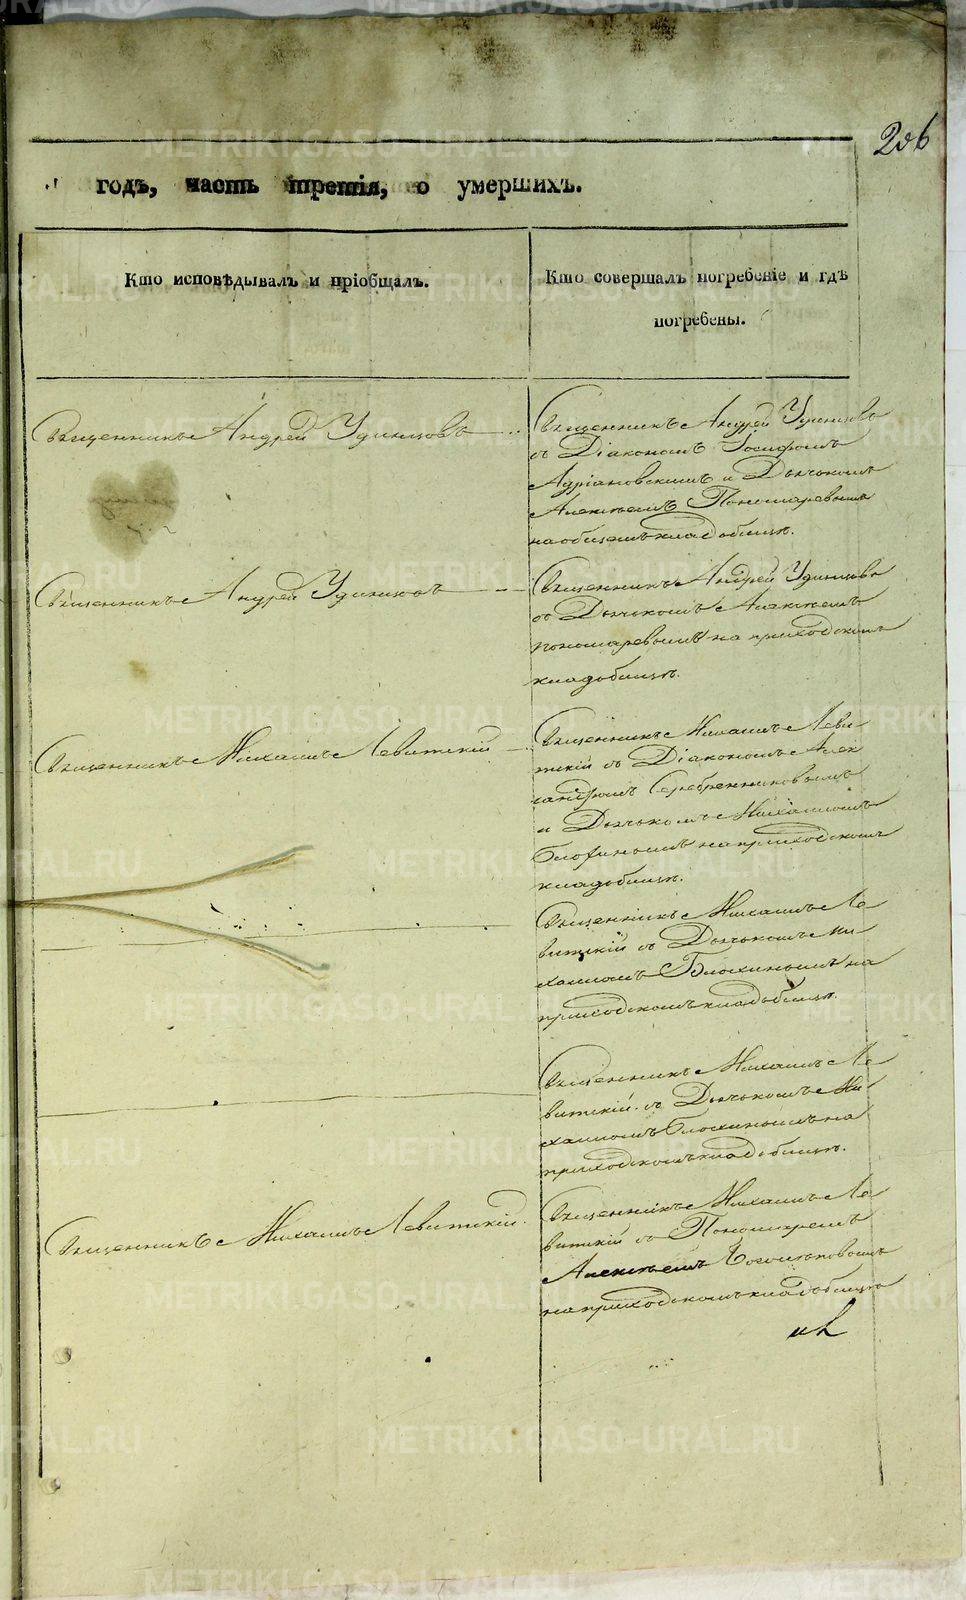 206
годъ, часть третія, о умершихъ.
Кто исповѣдывалъ и пріобщалъ.
Кто совершалъ погребеніе и гдѣ
погребены.
Священникъ Андрей Удинцовъ
Священникъ Андрей Удинцовъ
съ Діакономъ Іосифомъ
Адріановскимъ и Дьячкомъ
Алексѣемъ Пономаревымъ
на общемъ кладбищѣ.
Священникъ Андрей Удинцовъ
Священникъ Андрей Удинцовъ
съ Дьячкомъ Алексѣемъ
Пономаревымъ на приходскомъ
кладбищѣ.
Священникъ Михаилъ Левитскій
Священникъ Михаилъ Леви-
тскій съ Діакономъ Алек
сандромъ Серебренниковымъ
и Дьячкомъ Михаиломъ
на приходскомъ
кладбищѣ.
Священникъ Михаилъ Ле-
витскій съ Дьячкомъ Ми-
хаиломъ Блохинымъ на
приходскомъ кладбищѣ.
Священникъ Михаилъ Ле-
витскій съ Дьячкомъ Ми-
хаиломъ Блохинымъ на
приходскомъ кладбищѣ.
Священникъ Михаилъ Левитскій.
Священникъ Михаилъ Ле-
витскій съ Пономаремъ
Алексѣемъ
на приходскомъ кладбищѣ
METRIKI.GASO-URAL.RU